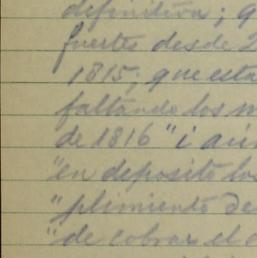 definitiva; q
fuertes desde 2
1815; que esta
faltando los m
de 1816" i aún
"en deposito los
"plimiento de
"de cobrar el